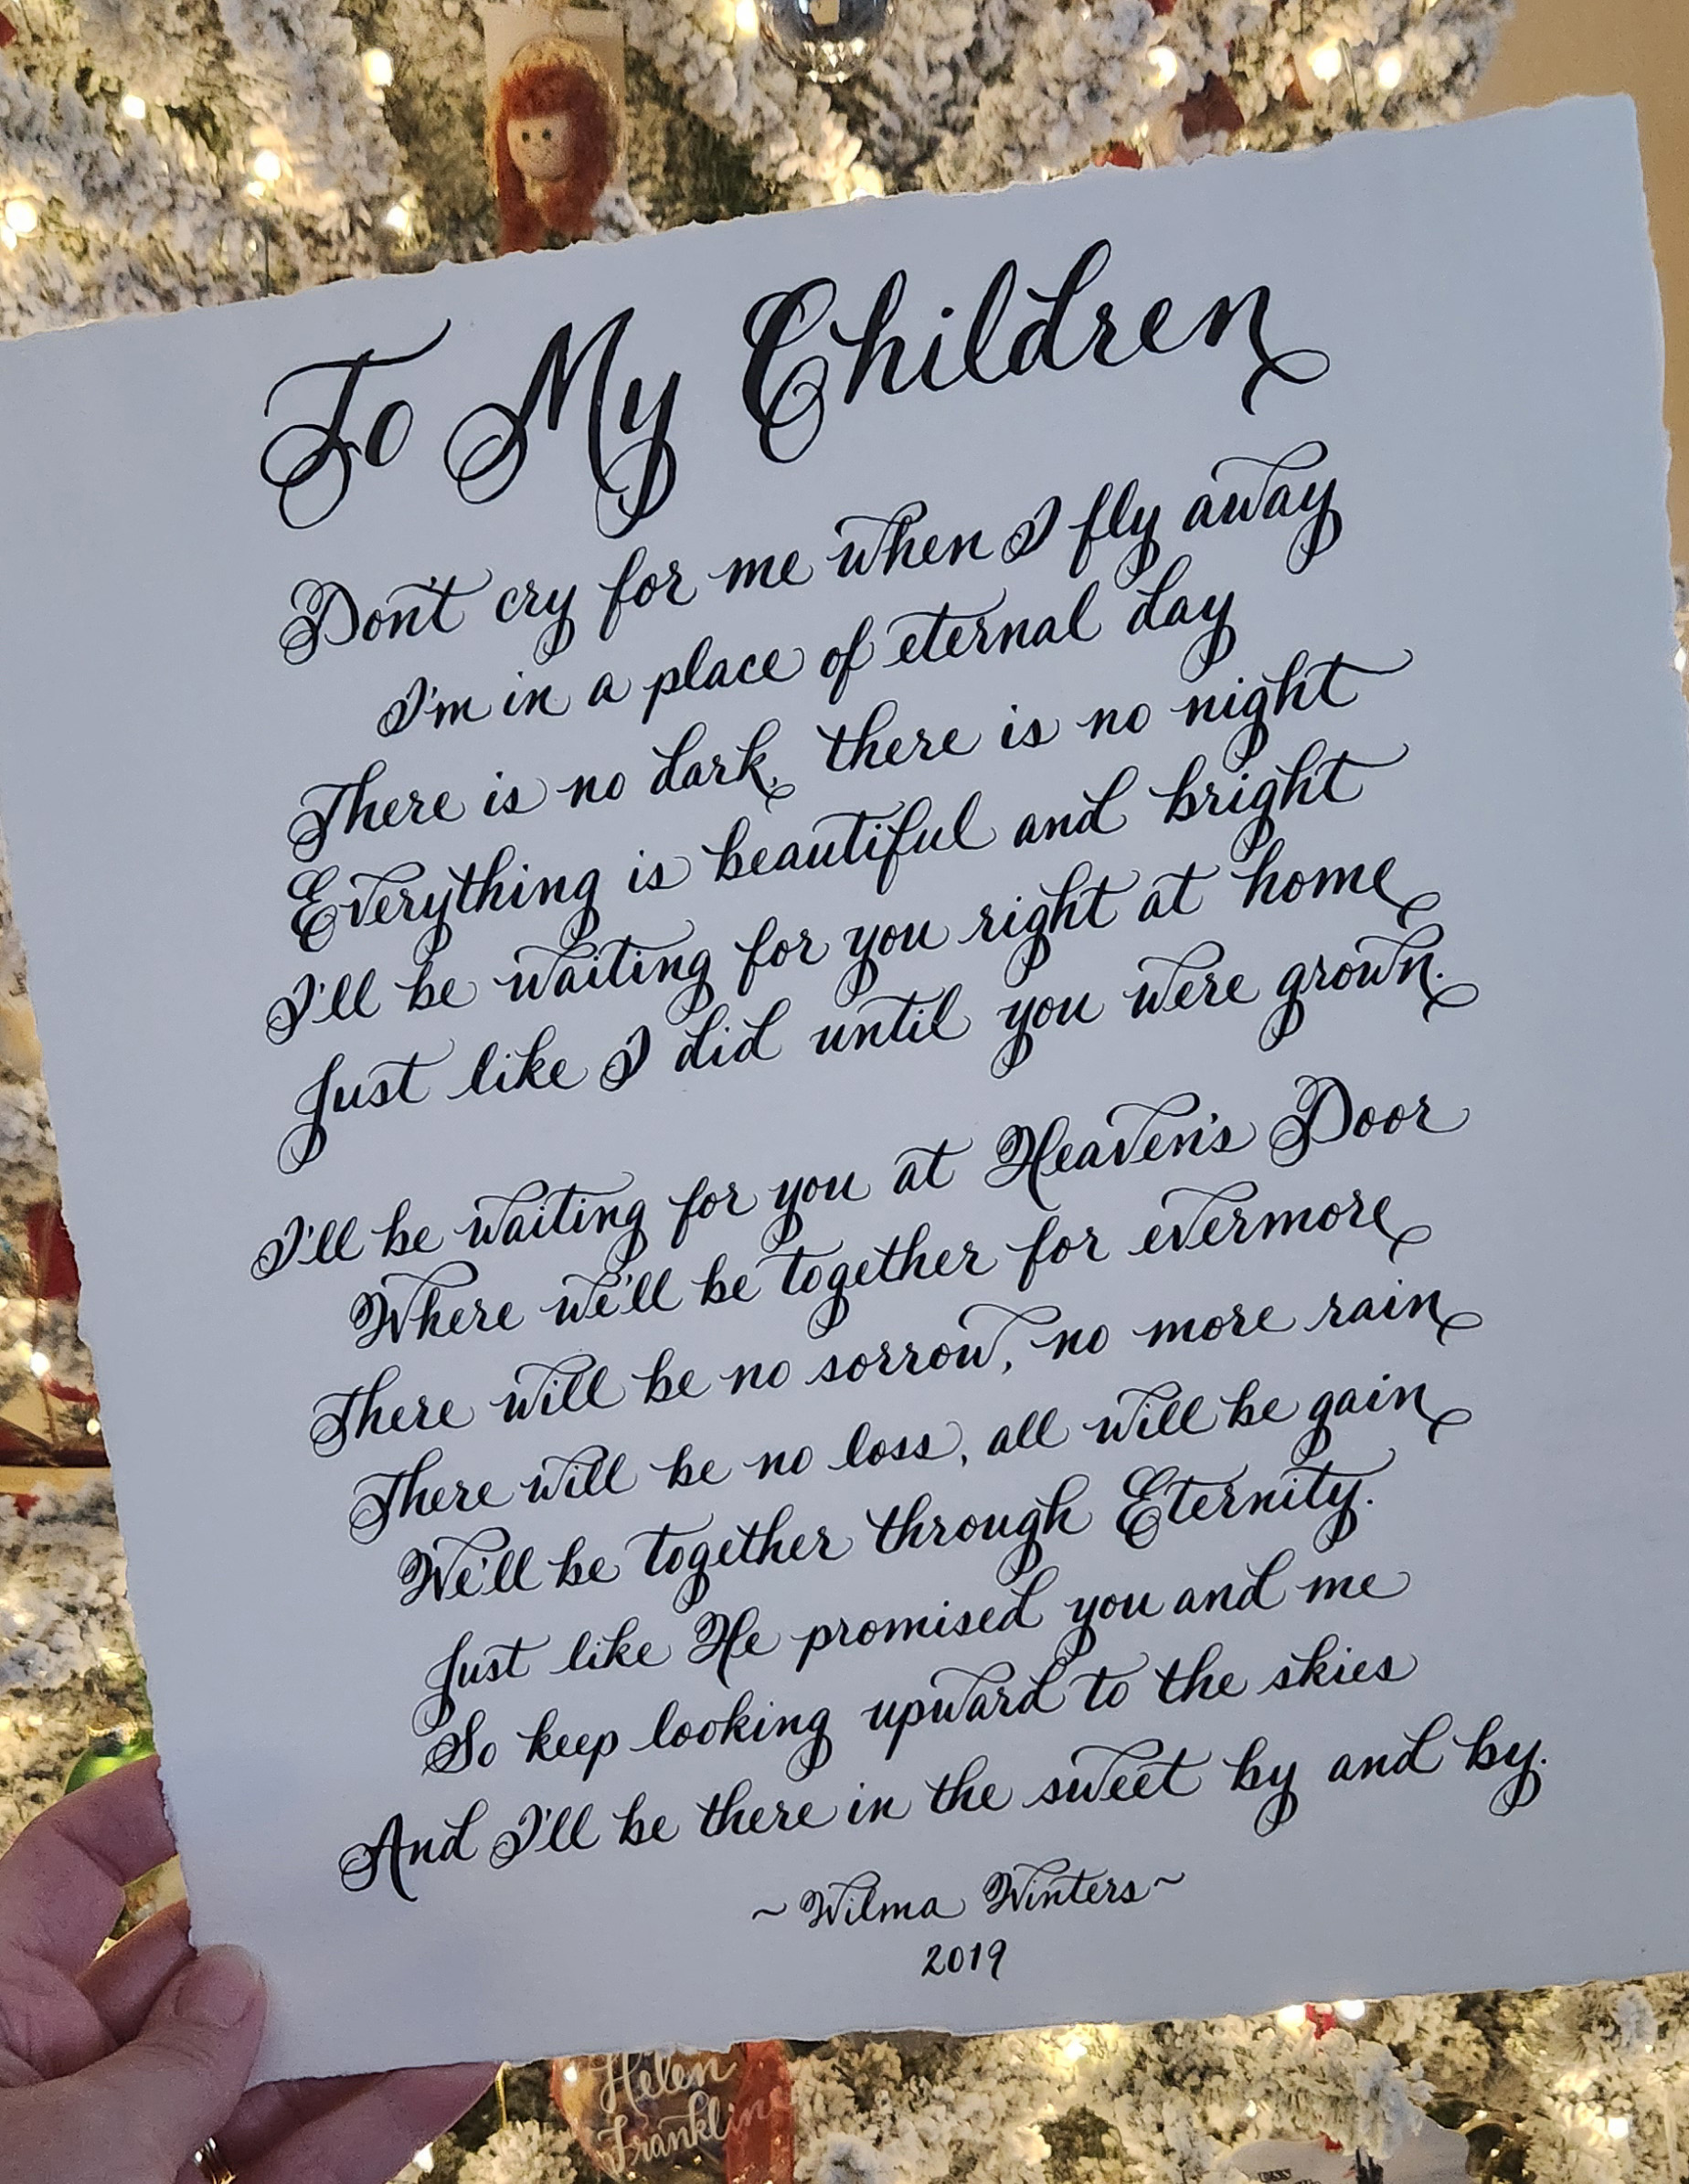 To My Children
Don't cry for me when I fly away
I'm in a place of eternal day
There is no dark, there is no night
Everything is beautiful and bright
I'll be waiting for you right at home
Just like I did until you were grown.
I'll be waiting for you at Heaven's Door
Where we'll be together for evermore
There will be no sorrow, no more rain
There will be no loss, all will be gain
We'll be together through Eternity.
Just like He promised you and me
So keep looking upward to the skies
And I'll be there in the sweet by and by.
~Wilma Winters~
2019
Helen
Franklin